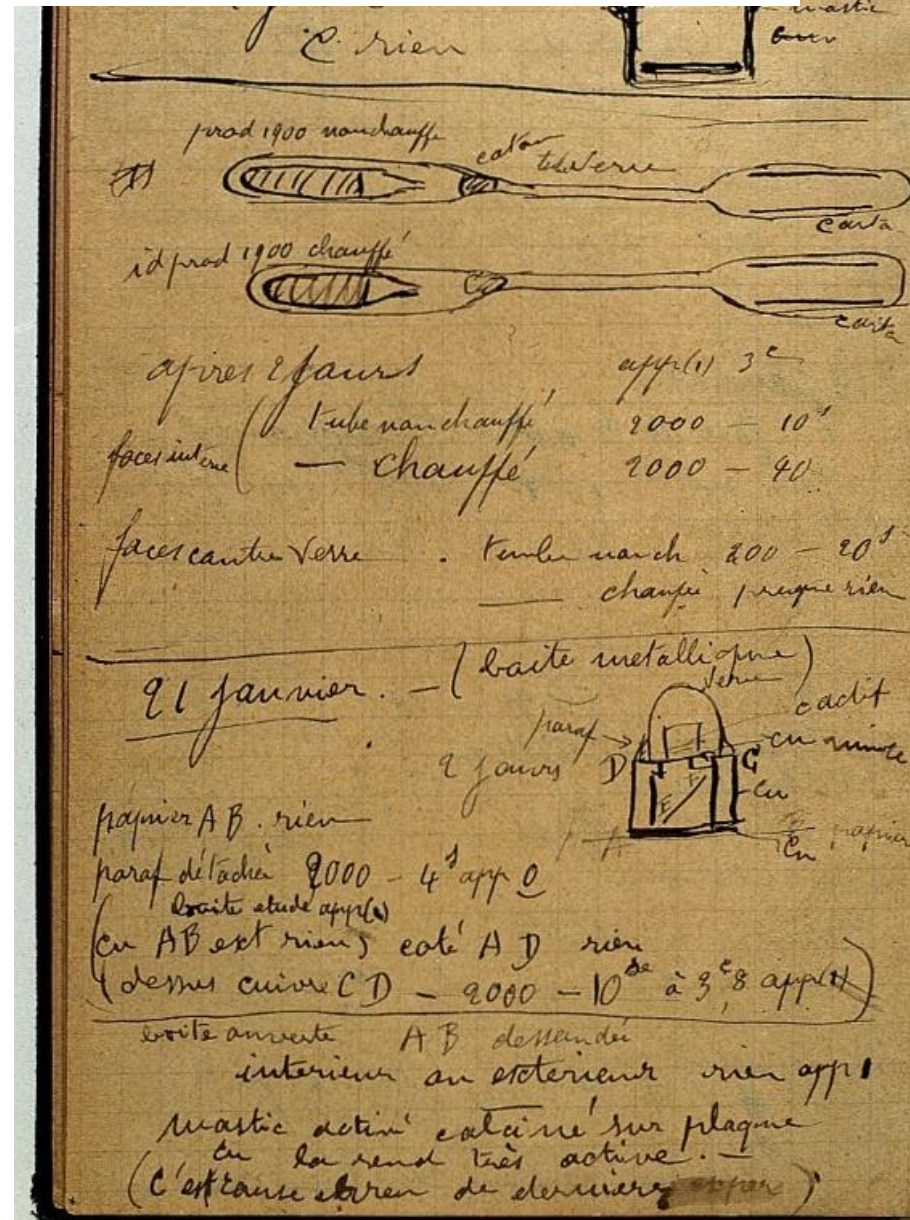 mastic
C. rien
prod 1900 non chauffé
coton
tube verre
carta
id prod 1900 chauffé
C
carta
apres 2 jours app(1) 3c
faces interne
tube non chauffé 2000 – 10s
— chauffé 2000 – 40
faces contre verre . tube non ch 200 – 20s
— chauffé presque rien
21 janvier. – (boite metallique)
verre
c actif
paraf
cu mince
2 jours D C
Cu
E F
papier A B . rien
A
papier
Cu
paraf détaché 2000 – 4s app 0
boite etude app(1)
(cu AB ext rien) coté A D rien
(dessus cuivre CD – 2000 – 10 à 3c,8 app(1))
boite ouverte A B dessoudée
interieur ou exterieur rien app 1
mastic activé calciné sur plaque
cu la rend très active. –
(C'est cause de dernière